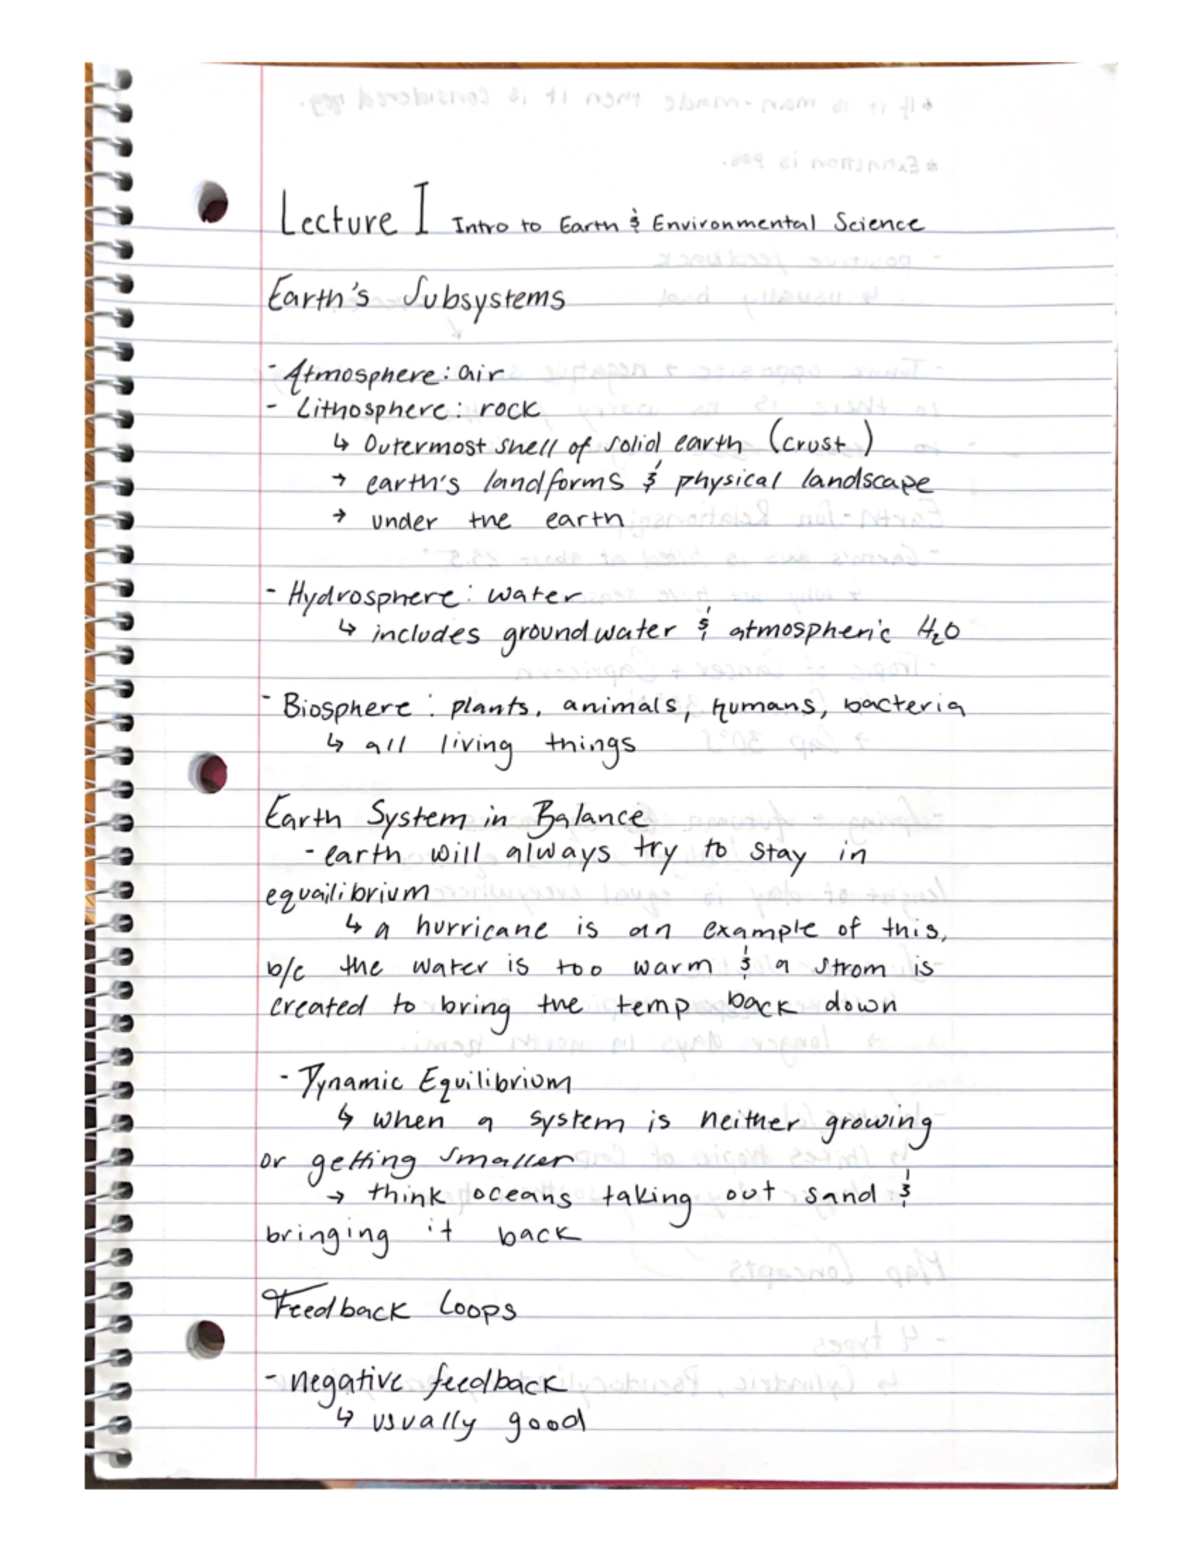 Lecture I Intro to Earth & Environmental Science
Earth's Subsystems
- Atmosphere: air
- Lithosphere: rock
↳ Outermost shell of solid earth (crust)
→ earth's landforms & physical landscape
→ under the earth
- Hydrosphere: water
↳ includes groundwater & atmospheric H₂O
- Biosphere: plants, animals, humans, bacteria
↳ all living things
Earth System in Balance
- earth will always try to stay in
equailibrium
↳ a hurricane is an example of this,
b/c the water is too warm & a strom is
created to bring the temp back down
- Dynamic Equilibrium
↳ when a system is neither growing
or getting smaller
→ think oceans taking out sand &
bringing it back
Feedback Loops
- negative feedback
↳ usually good